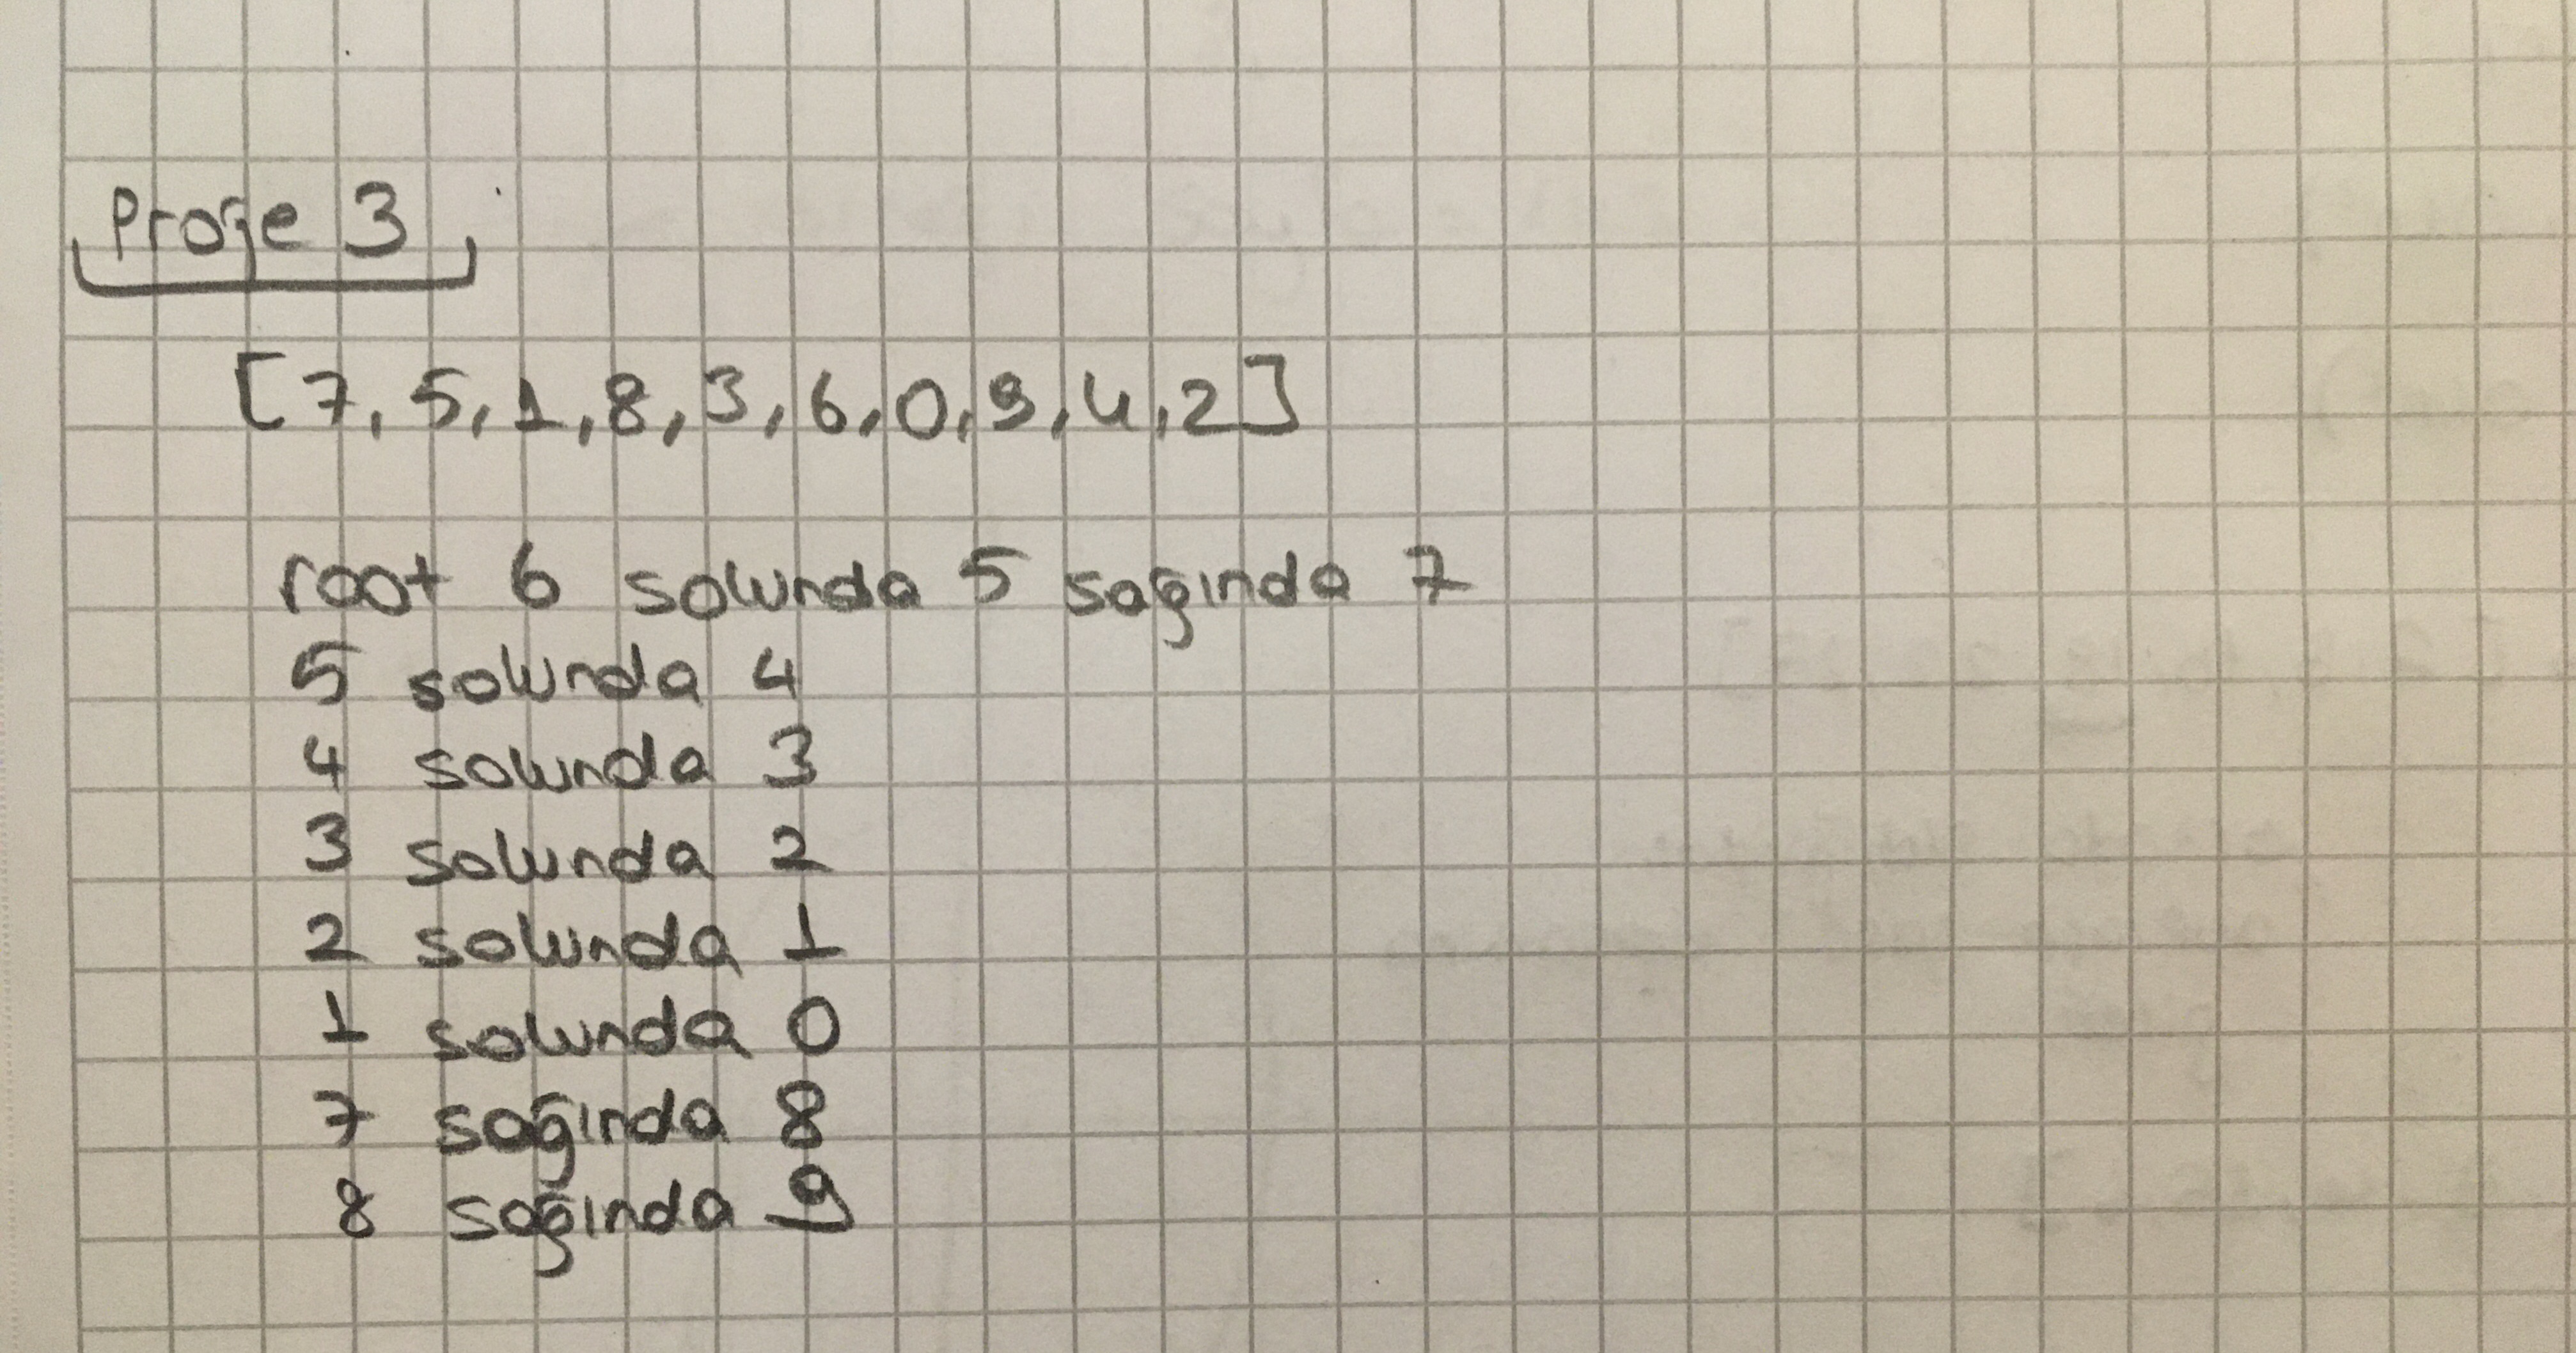 Proje 3
[7, 5, 1, 8, 3, 6, 0, 9, 4, 2]
root 6 solunda 5 sağında 7
5 solunda 4
4 solunda 3
3 solunda 2
2 solunda 1
1 solunda 0
7 sağında 8
8 sağında 9